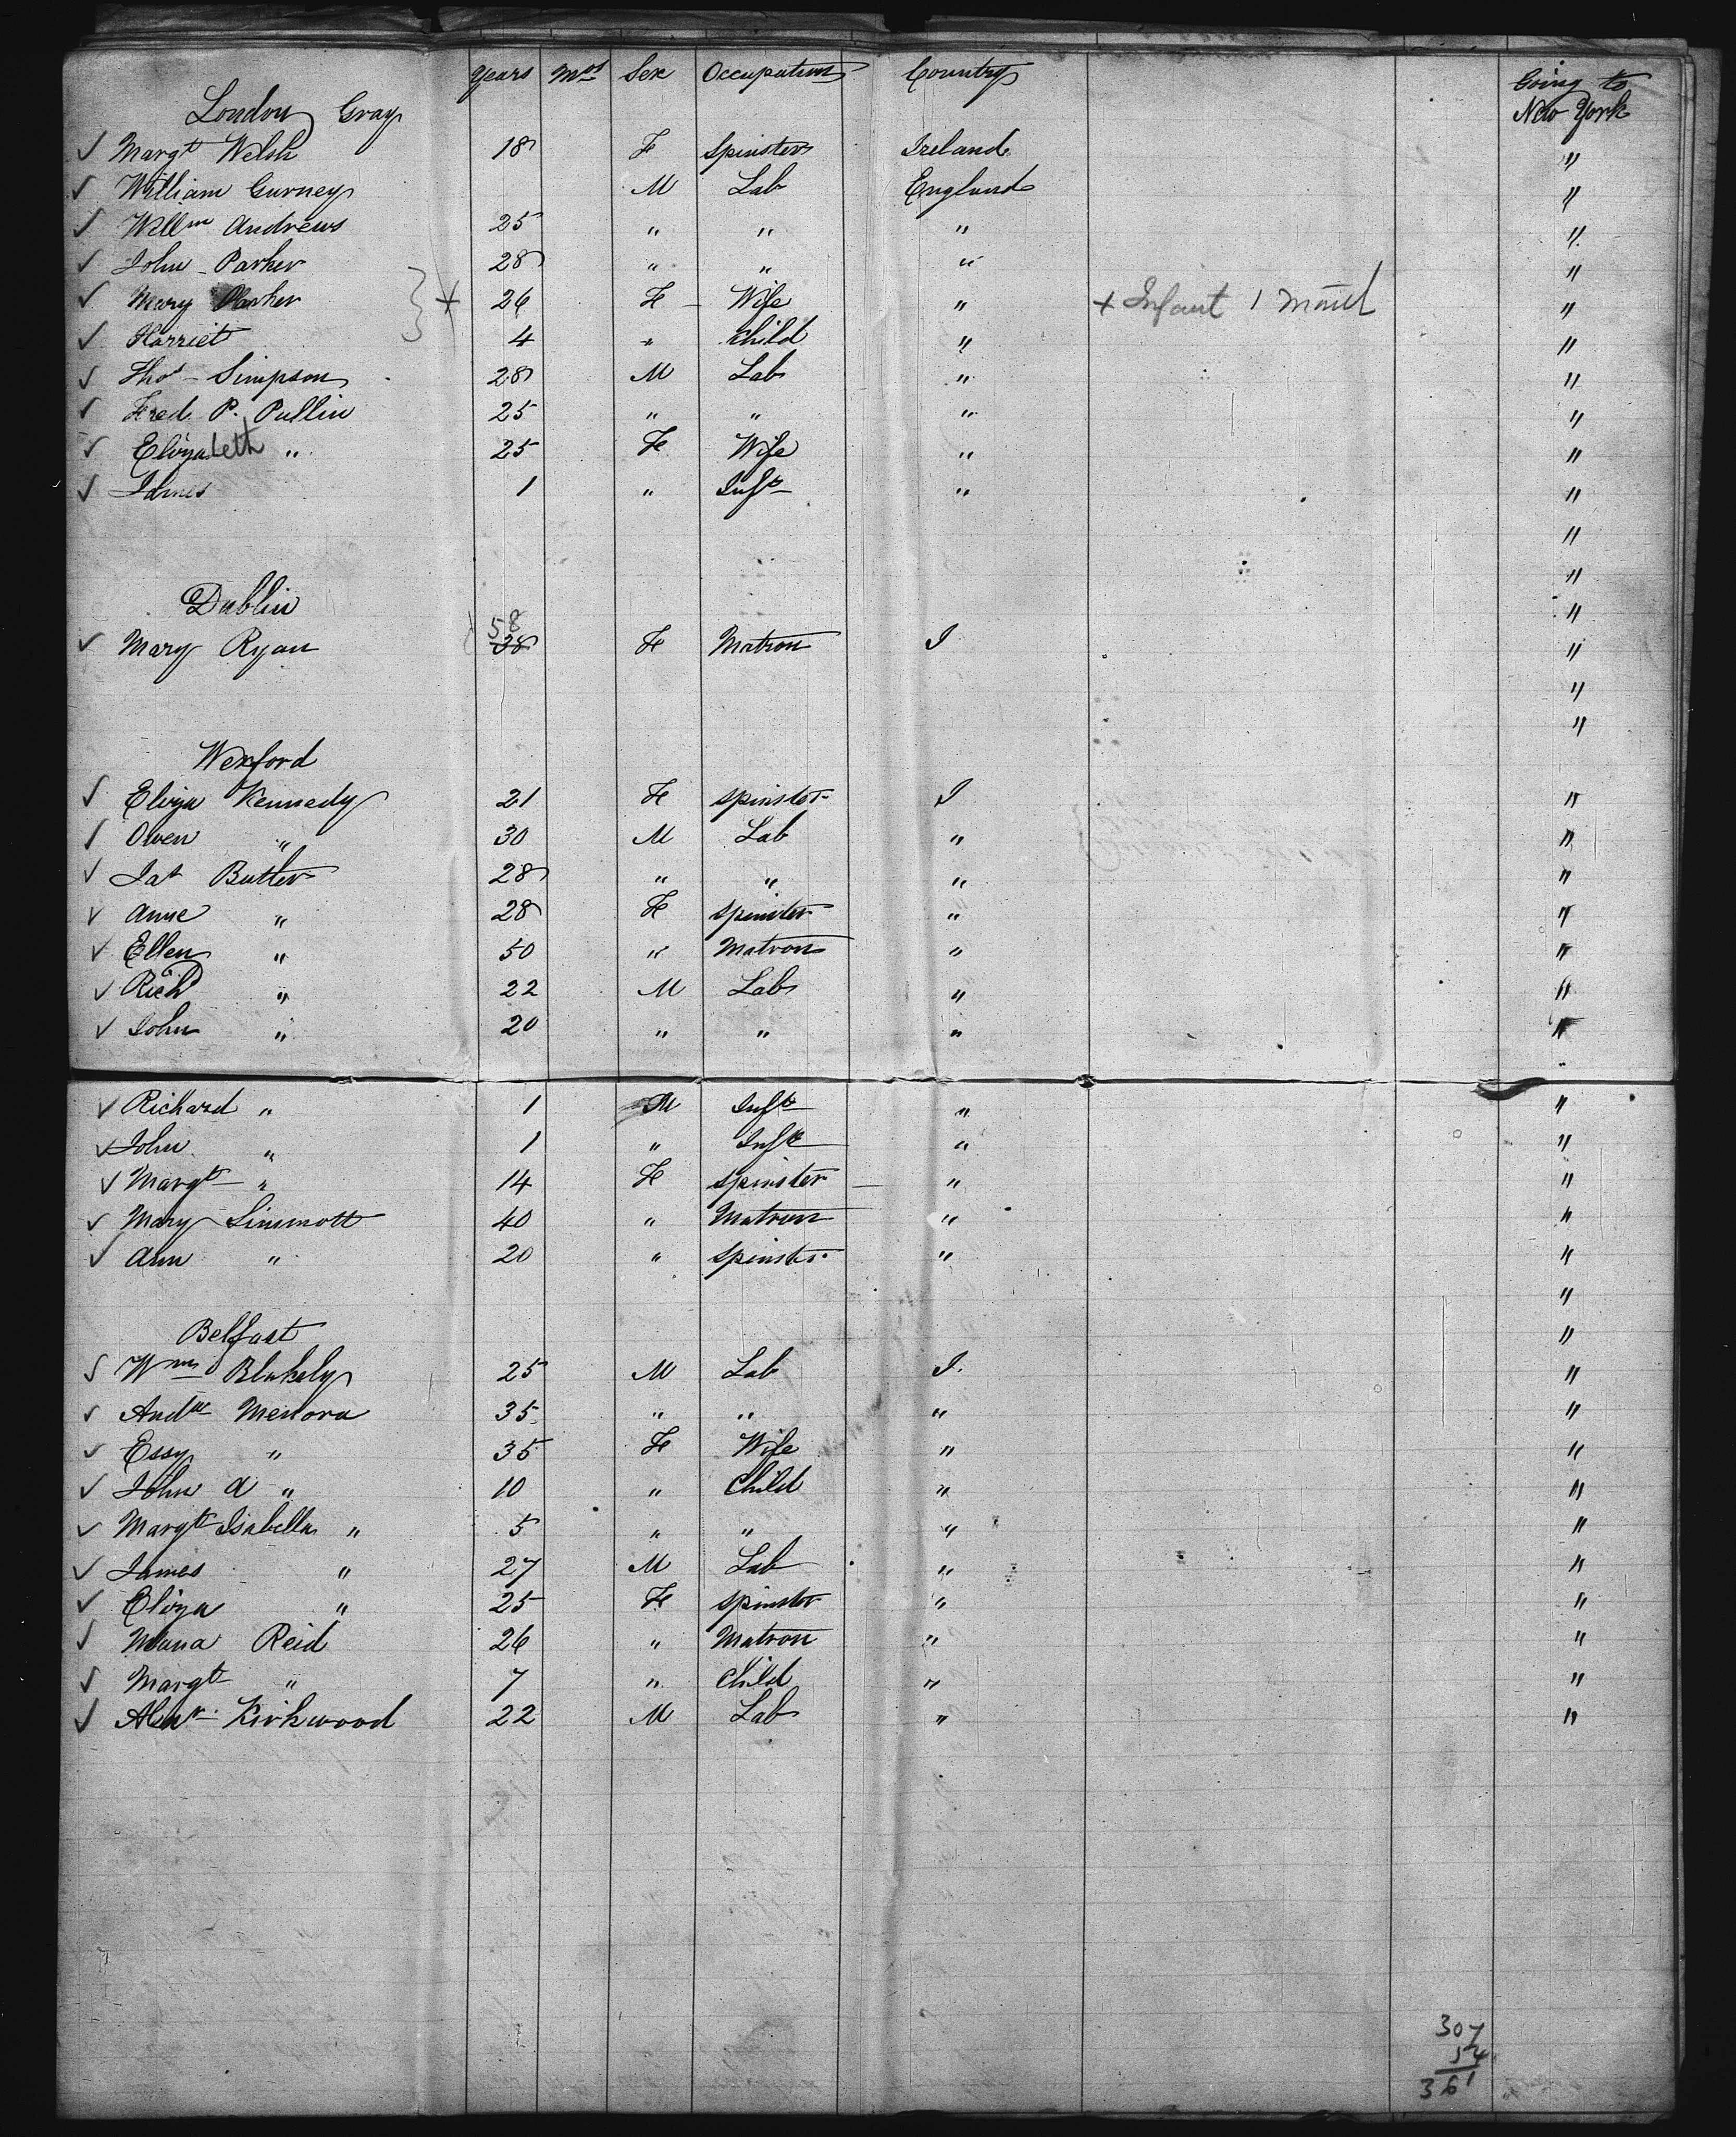 Years Mos Sex Occupation Country Going to
London Gray New York
✓ Margt Welsh 18 F Spinster Ireland "
✓ William Gurney M Lab England "
✓ Willm Andrews 25 " " " "
✓ John - Parker 28 " " " "
✓ Mary Parker } + 26 F - Wife " + Infant 1 month "
✓ Harriet 4 " Child " "
✓ Thos - Simpson 28 M Lab " "
✓ Fred P. Pullin 25 " " " "
✓ Elizabeth " 25 F Wife " "
✓ James 1 " Inft " "
"
"
Dublin "
✓ Mary Ryan 58 38 F Matron I "
"
"
Wexford
✓ Eliza Kennedy 21 F Spinster I "
✓ Owen " 30 M Lab " "
✓ Butler 28 " " " "
✓ Anne " 28 F Spinster " "
✓ Ellen " 50 " Matron " "
✓ Richd " 22 M Lab " "
✓ John " 20 " " " "
✓ Richard " 1 M Inft " "
✓ John " 1 " Inft " "
✓ Margt " 14 F Spinster " "
✓ Mary Sinnott 40 " Matron " "
✓ Ann " 20 " Spinster " "
"
Belfast "
✓ Wm Blakely 25 M Lab I. "
✓ Andw 35 " " " "
✓ Essy " 35 F Wife " "
✓ John A " 10 " Child " "
✓ Margt Isabella " 5 " " " "
✓ James " 27 M Lab " "
✓ Eliza " 25 F Spinster " "
✓ Reid 26 " Matron " "
✓ Margt " 7 " Child " "
✓ Alexr Kirkwood 22 M Lab " "
307
54
361